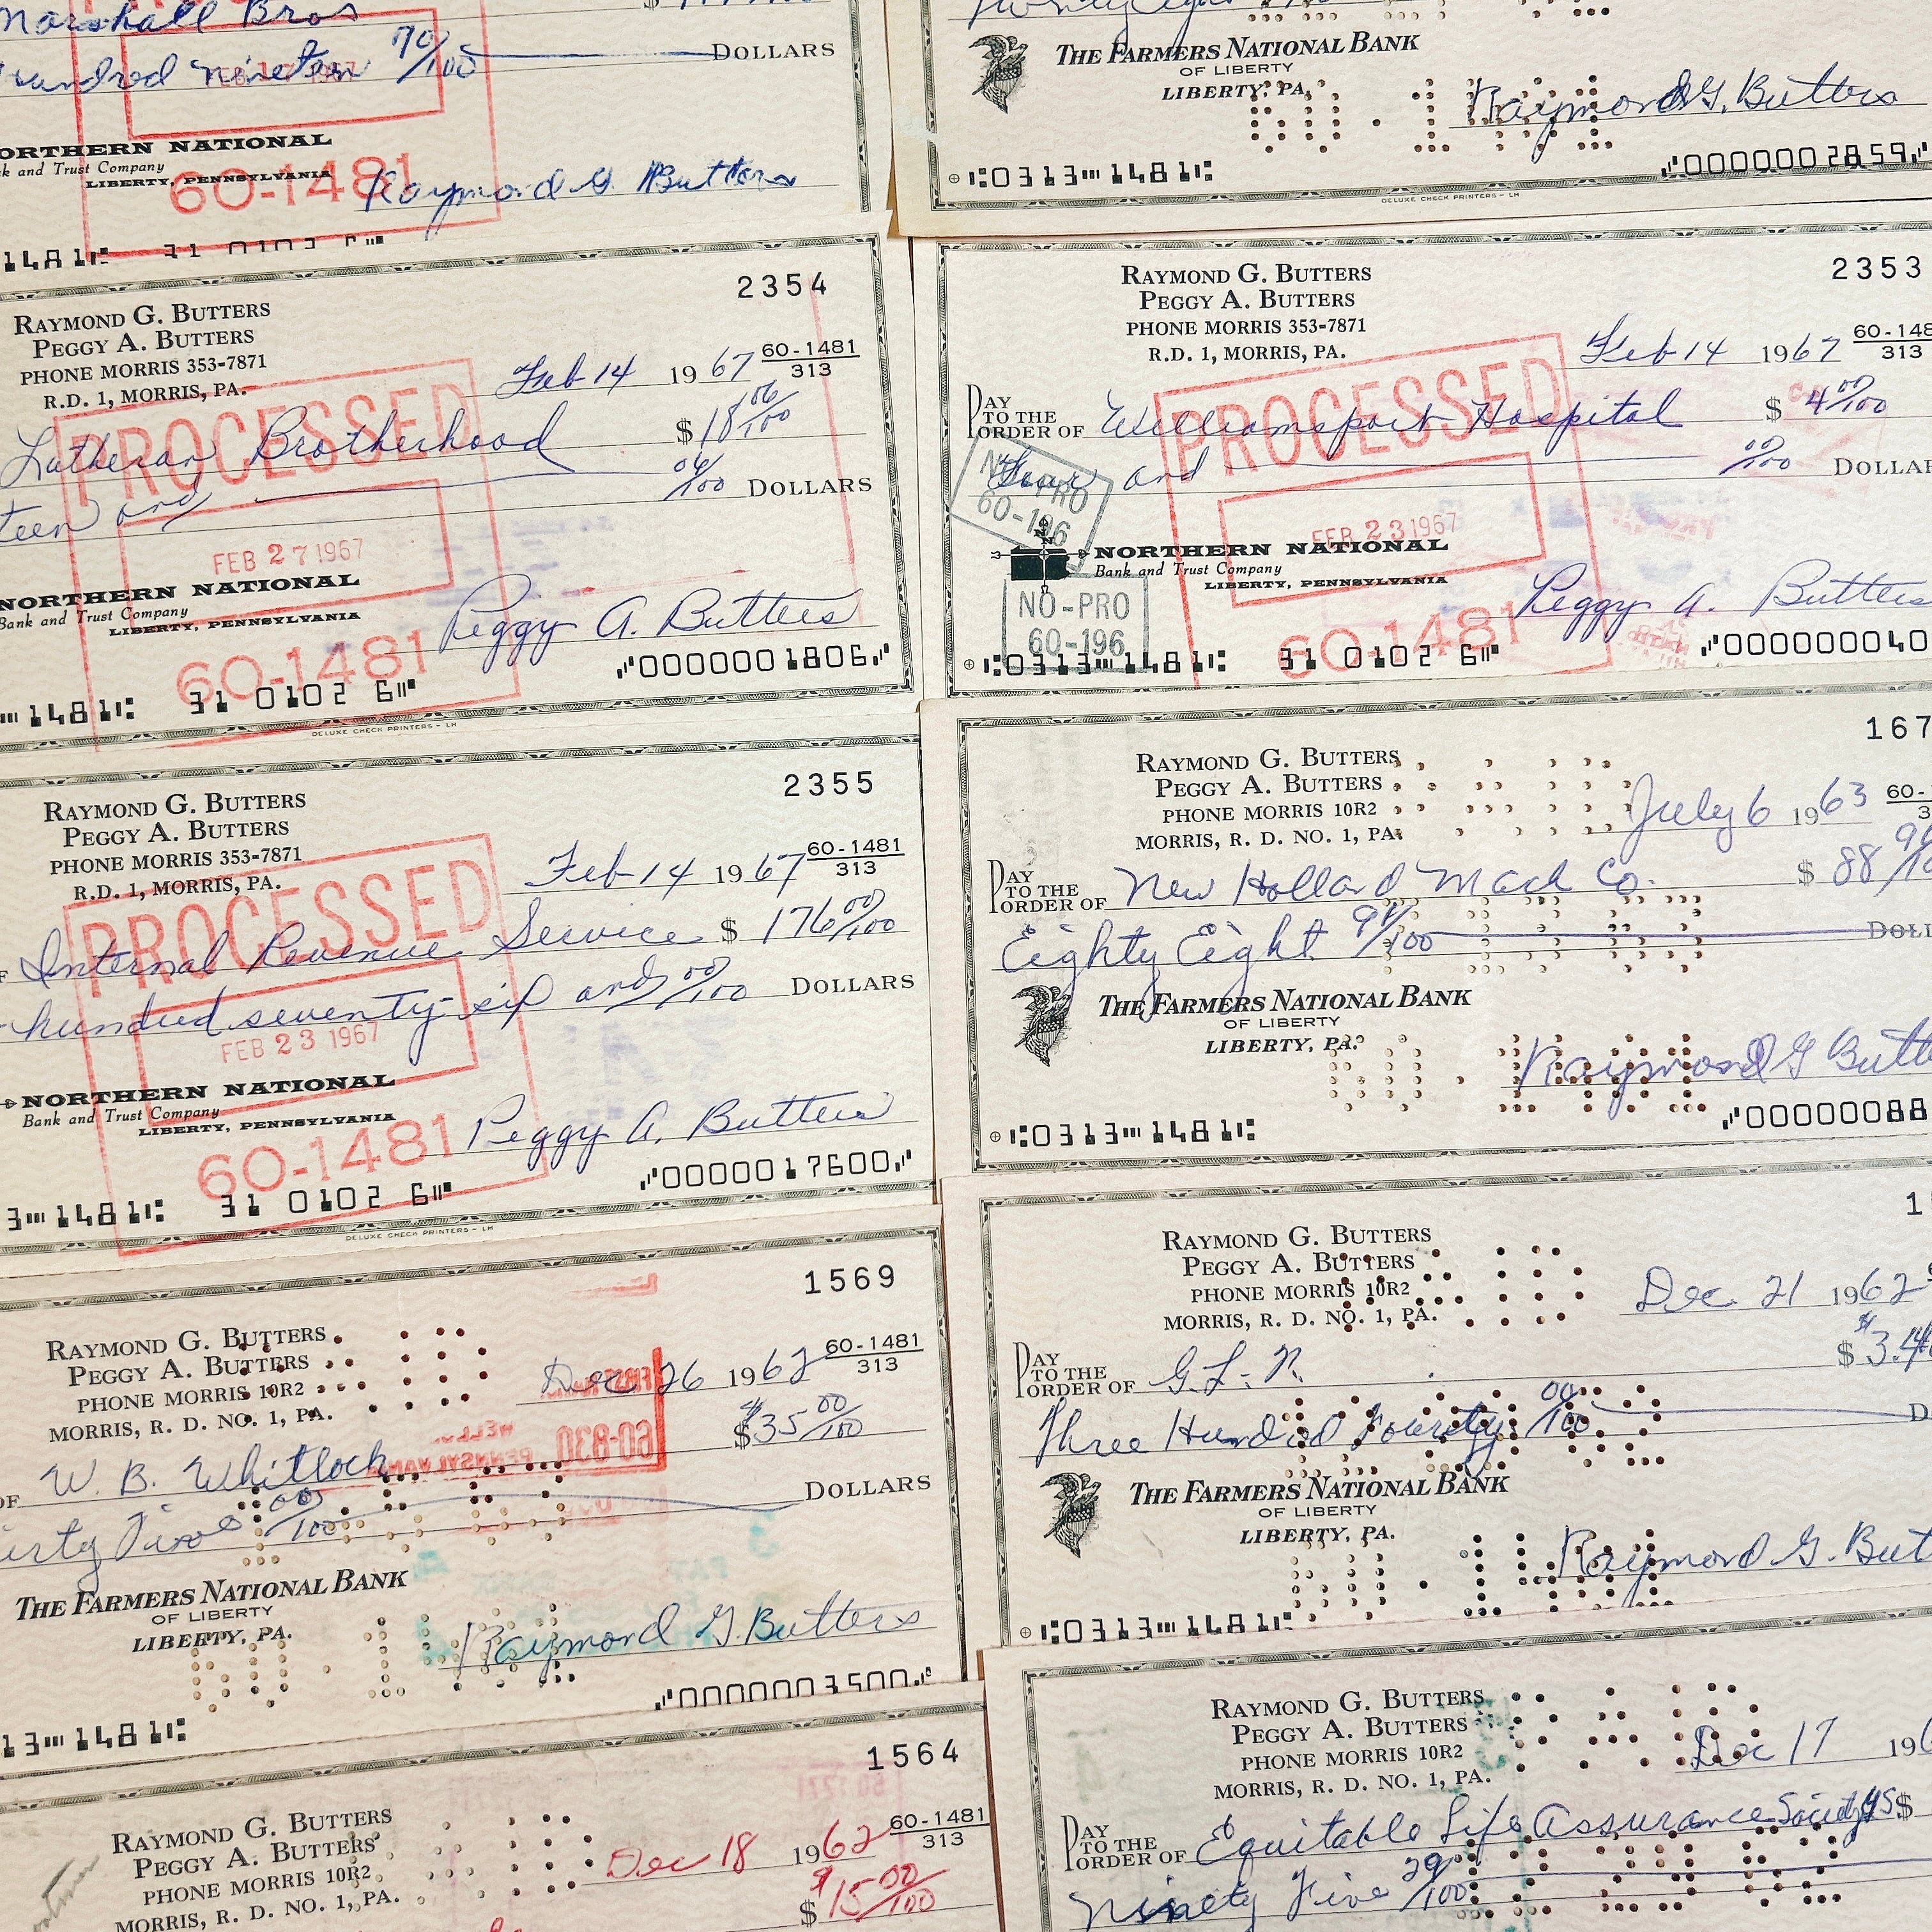 Marshall Bros
hundred nineteen 70/100 DOLLARS
NORTHERN NATIONAL
Bank and Trust Company
LIBERTY, PENNSYLVANIA
60-1481
Raymond G. Butters
THE FARMERS NATIONAL BANK
OF LIBERTY
LIBERTY, PA.
Raymond G. Butters
⑆0313⑉1481⑆
0000002859
DELUXE CHECK PRINTERS - LH
2354
RAYMOND G. BUTTERS
PEGGY A. BUTTERS
PHONE MORRIS 353-7871
R.D. 1, MORRIS, PA.
Feb 14 1967 60-1481
313
PROCESSED
Lutheran Brotherhood $18 06/100
teen and 06/100 DOLLARS
FEB 27 1967
NORTHERN NATIONAL
Bank and Trust Company
LIBERTY, PENNSYLVANIA
Peggy A. Butters
60-1481
1481⑆ 31 0102 6⑈
0000001806
DELUXE CHECK PRINTERS - LH
2353
RAYMOND G. BUTTERS
PEGGY A. BUTTERS
PHONE MORRIS 353-7871
R.D. 1, MORRIS, PA.
Feb 14 1967 60-148
313
PROCESSED
PAY TO THE ORDER OF Williamsport Hospital $4 00/100
Four and 00/100 DOLLAR
NO-PRO
60-196
FEB 23 1967
NORTHERN NATIONAL
Bank and Trust Company
LIBERTY, PENNSYLVANIA
NO-PRO
60-196
Peggy A. Butters
60-1481
⑆0313⑉1481⑆ 31 0102 6⑈
00000040
2355
RAYMOND G. BUTTERS
PEGGY A. BUTTERS
PHONE MORRIS 353-7871
R.D. 1, MORRIS, PA.
Feb 14 1967 60-1481
313
PROCESSED
Internal Revenue Service $176 00/100
hundred seventy-six and 00/100 DOLLARS
FEB 23 1967
NORTHERN NATIONAL
Bank and Trust Company
LIBERTY, PENNSYLVANIA
Peggy A. Butters
60-1481
3⑉1481⑆ 31 0102 6⑈
0000017600
DELUXE CHECK PRINTERS - LH
167
RAYMOND G. BUTTERS
PEGGY A. BUTTERS
PHONE MORRIS 10R2
MORRIS, R. D. NO. 1, PA.
July 6 1963 60-
PAY TO THE ORDER OF New Holland Mach Co. $88
Eighty Eight 91/100
THE FARMERS NATIONAL BANK
OF LIBERTY
LIBERTY, PA.
Raymond G Butte
⑆0313⑉1481⑆
00000088
1569
RAYMOND G. BUTTERS
PEGGY A. BUTTERS
PHONE MORRIS 10R2
MORRIS, R. D. NO. 1, PA.
Dec 26 1962 60-1481
313
$35 00/100
OF W. B. Whitlock
irty Five 00/100 DOLLARS
THE FARMERS NATIONAL BANK
OF LIBERTY
LIBERTY, PA.
Raymond G. Butters
13⑉1481⑆
0000003500
1
RAYMOND G. BUTTERS
PEGGY A. BUTTERS
PHONE MORRIS 10R2
MORRIS, R. D. NO. 1, PA.
Dec 21 1962
PAY TO THE ORDER OF G.L.N.
Three Hundred Fourty 00/100 D
THE FARMERS NATIONAL BANK
OF LIBERTY
LIBERTY, PA.
Raymond G. But
⑆0313⑉1481⑆
1564
RAYMOND G. BUTTERS
PEGGY A. BUTTERS
PHONE MORRIS 10R2
MORRIS, R. D. NO. 1, PA.
Dec 18 1962 60-1481
313
$15 00/100
RAYMOND G. BUTTERS
PEGGY A. BUTTERS
PHONE MORRIS 10R2
MORRIS, R. D. NO. 1, PA.
Dec 17 196
PAY TO THE ORDER OF Equitable Life Assurance Society US $
Ninety Five 29/100